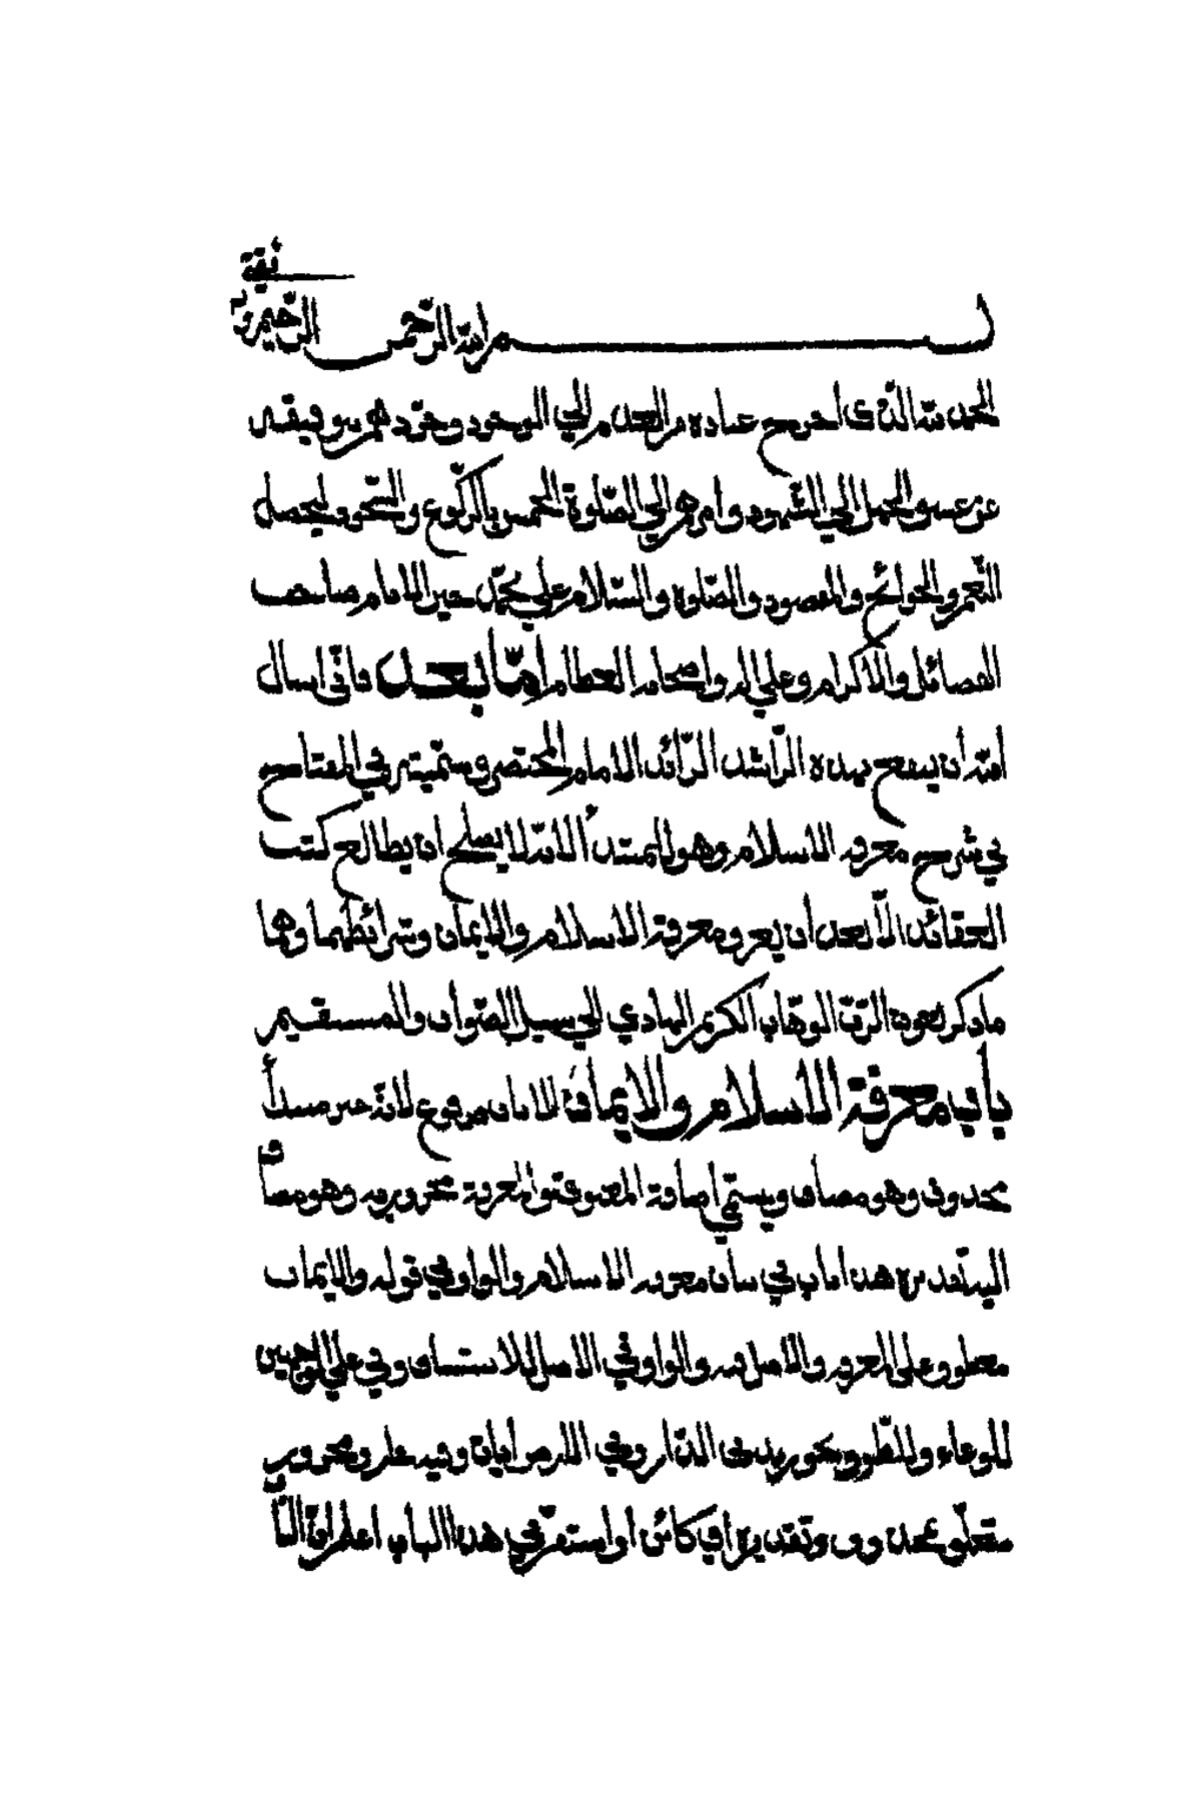 ثقتي
بسم الله الرحمن الرحيم وبه
الحمد لله الذي اخرج عباده من العدم الي الوجود وجود هم بتوفيقه
عن عسو الجهل الي الشهود وامرهم الي الصلوة الخمس بالركوع والسجود ليحصل
النعم والحوائج والمقصود والصلوة والسلام علي محمد خير الانام صاحب
الفضائل والاكرام وعلي اله واصحابه العظام اما بعد فاني اسال
الله أن ينفع بهذه الراشد الزائد الامام المختصر وسميته في المفتاح
في شرح معرفة الاسلام وهو للمبتدأ لانه لا يصلح ان يطالع كتب
العقائد الا بعد أن يعرف معرفة الاسلام والايمان وشرائطهما وهما
ما ذكر بعون الرب الوهاب الكريم الهادي الي سبيل الصواب والمستقيم
باب معرفة الاسلام والايمان الباب مرفوع لانه خبر مبتدأ
محذوف وهو مضاف ويسمي اضافة المعنوية والمعرفة مجرور به وهو مضاف
اليه تقديره هذا باب في بيان معرفة الاسلام والواو في قوله والايمان
معطوف علي المعرفة والاصل فيه والواو في الاصل للاستئناف وفي علي الوجهين
للوعاء وللظروف نحو زيد في الدار وفي الارض ايات وفيه جار ومجرور
متعلق بمحذوف وتقديره اي كائن او استقر في هذا الباب اعلم ان البا